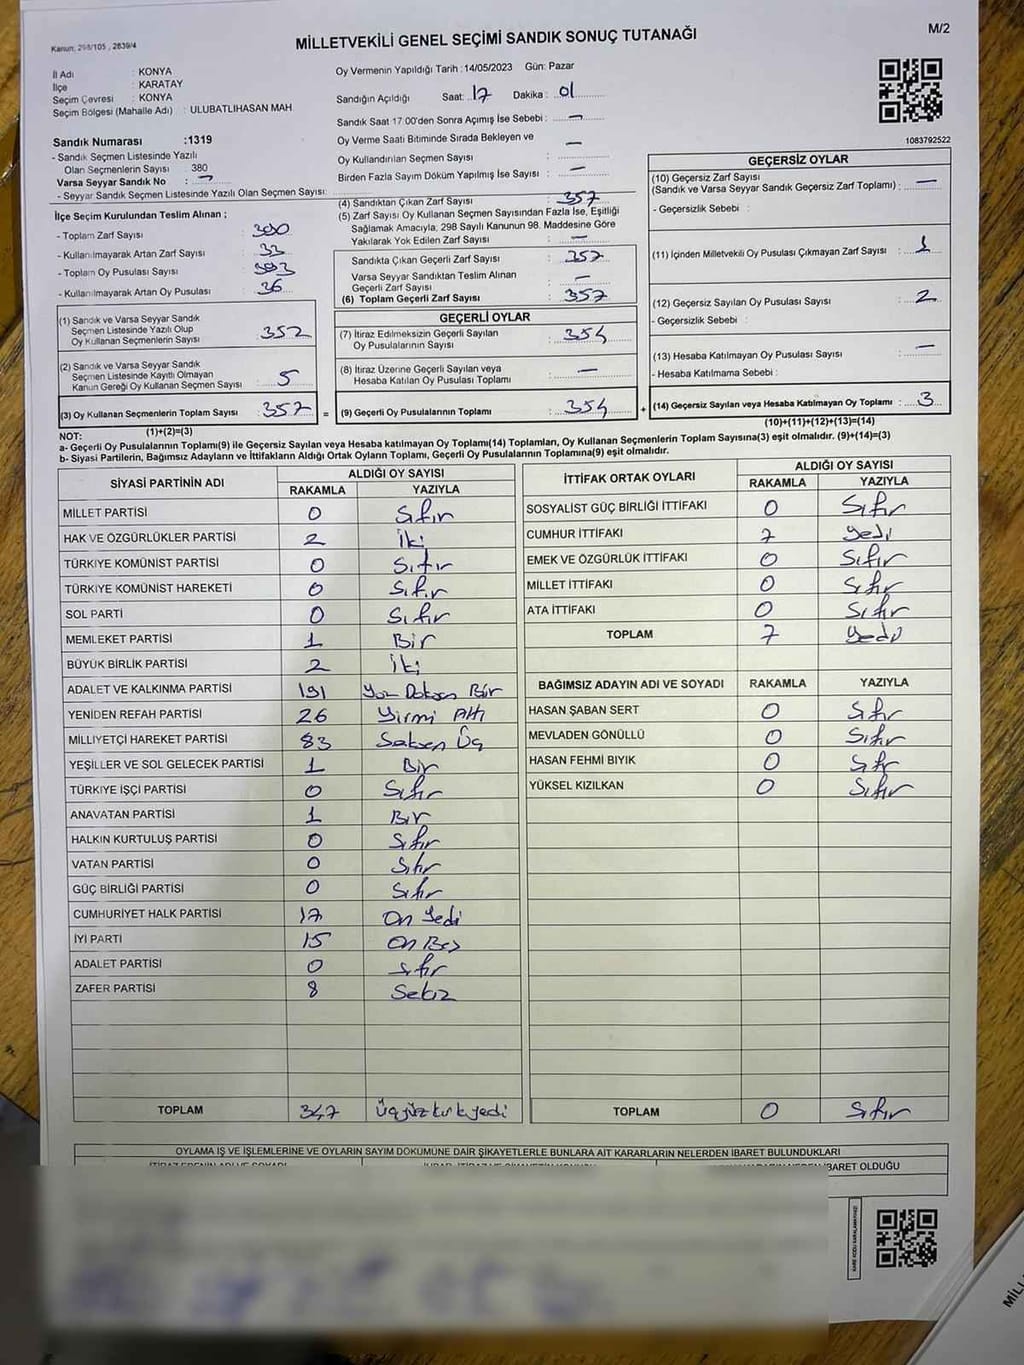 Kanun, 298/105 , 2839/4
MİLLETVEKİLİ GENEL SEÇİMİ SANDIK SONUÇ TUTANAĞI
M/2
İl Adı : KONYA
İlçe : KARATAY
Seçim Çevresi : KONYA
Seçim Bölgesi (Mahalle Adı) : ULUBATLIHASAN MAH
Oy Vermenin Yapıldığı Tarih : 14/05/2023 Gün: Pazar
Sandığın Açıldığı Saat: 17 Dakika : 01
Sandık Saat 17:00'den Sonra Açımış İse Sebebi : —
Oy Verme Saati Bitiminde Sırada Bekleyen ve
Oy Kullandırılan Seçmen Sayısı : —
Birden Fazla Sayım Döküm Yapılmış İse Sayısı : —
1083792522
Sandık Numarası :1319
- Sandık Seçmen Listesinde Yazılı
Olan Seçmenlerin Sayısı : 380
Varsa Seyyar Sandık No : —
- Seyyar Sandık Seçmen Listesinde Yazılı Olan Seçmen Sayısı:
İlçe Seçim Kurulundan Teslim Alınan ;
- Toplam Zarf Sayısı :
- Kullanılmayarak Artan Zarf Sayısı : 33
- Toplam Oy Pusulası Sayısı :
- Kullanılmayarak Artan Oy Pusulası : 36
(1) Sandık ve Varsa Seyyar Sandık
Seçmen Listesinde Yazılı Olup
Oy Kullanan Seçmenlerin Sayısı : 352
(2) Sandık ve Varsa Seyyar Sandık
Seçmen Listesinde Kayıtlı Olmayan
Kanun Gereği Oy Kullanan Seçmen Sayısı : 5
(3) Oy Kullanan Seçmenlerin Toplam Sayısı : 357 =
(1)+(2)=(3)
(4) Sandıktan Çıkan Zarf Sayısı : 357
(5) Zarf Sayısı Oy Kullanan Seçmen Sayısından Fazla İse, Eşitliği
Sağlamak Amacıyla, 298 Sayılı Kanunun 98. Maddesine Göre
Yakılarak Yok Edilen Zarf Sayısı : —
Sandıkta Çıkan Geçerli Zarf Sayısı : 357
Varsa Seyyar Sandıktan Teslim Alınan
Geçerli Zarf Sayısı : —
(6) Toplam Geçerli Zarf Sayısı : 357
GEÇERLİ OYLAR
(7) İtiraz Edilmeksizin Geçerli Sayılan
Oy Pusulalarının Sayısı : 354
(8) İtiraz Üzerine Geçerli Sayılan veya
Hesaba Katılan Oy Pusulası Toplamı : —
(9) Geçerli Oy Pusulalarının Toplamı : 354 +
GEÇERSİZ OYLAR
(10) Geçersiz Zarf Sayısı
(Sandık ve Varsa Seyyar Sandık Geçersiz Zarf Toplamı) : —
- Geçersizlik Sebebi :
(11) İçinden Milletvekili Oy Pusulası Çıkmayan Zarf Sayısı : 1
(12) Geçersiz Sayılan Oy Pusulası Sayısı : 2
- Geçersizlik Sebebi :
(13) Hesaba Katılmayan Oy Pusulası Sayısı : —
- Hesaba Katılmama Sebebi :
(14) Geçersiz Sayılan veya Hesaba Katılmayan Oy Toplamı : 3
(10)+(11)+(12)+(13)=(14)
NOT:
a- Geçerli Oy Pusulalarının Toplamı(9) ile Geçersiz Sayılan veya Hesaba katılmayan Oy Toplamı(14) Toplamları, Oy Kullanan Seçmenlerin Toplam Sayısına(3) eşit olmalıdır. (9)+(14)=(3)
b- Siyasi Partilerin, Bağımsız Adayların ve İttifakların Aldığı Ortak Oyların Toplamı, Geçerli Oy Pusulalarının Toplamına(9) eşit olmalıdır.
SİYASİ PARTİNİN ADI ALDIĞI OY SAYISI
RAKAMLA YAZIYLA
MİLLET PARTİSİ 0 Sıfır
HAK VE ÖZGÜRLÜKLER PARTİSİ 2 İki
TÜRKİYE KOMÜNİST PARTİSİ 0 Sıfır
TÜRKİYE KOMÜNİST HAREKETİ 0 Sıfır
SOL PARTİ 0 Sıfır
MEMLEKET PARTİSİ 1 Bir
BÜYÜK BİRLİK PARTİSİ 2 İki
ADALET VE KALKINMA PARTİSİ 191 Yüz Doksan Bir
YENİDEN REFAH PARTİSİ 26 Yirmi Altı
MİLLİYETÇİ HAREKET PARTİSİ 83 Seksen Üç
YEŞİLLER VE SOL GELECEK PARTİSİ 1 Bir
TÜRKİYE İŞÇİ PARTİSİ 0 Sıfır
ANAVATAN PARTİSİ 1 Bir
HALKIN KURTULUŞ PARTİSİ 0 Sıfır
VATAN PARTİSİ 0 Sıfır
GÜÇ BİRLİĞİ PARTİSİ 0 Sıfır
CUMHURİYET HALK PARTİSİ 17 On Yedi
İYİ PARTİ 15 On Beş
ADALET PARTİSİ 0 Sıfır
ZAFER PARTİSİ 8 Sekiz
TOPLAM 347 Üçyüzkırkyedi
İTTİFAK ORTAK OYLARI ALDIĞI OY SAYISI
RAKAMLA YAZIYLA
SOSYALİST GÜÇ BİRLİĞİ İTTİFAKI 0 Sıfır
CUMHUR İTTİFAKI 7 Yedi
EMEK VE ÖZGÜRLÜK İTTİFAKI 0 Sıfır
MİLLET İTTİFAKI 0 Sıfır
ATA İTTİFAKI 0 Sıfır
TOPLAM 7 Yedi
BAĞIMSIZ ADAYIN ADI VE SOYADI RAKAMLA YAZIYLA
HASAN ŞABAN SERT 0 Sıfır
MEVLADEN GÖNÜLLÜ 0 Sıfır
HASAN FEHMİ BIYIK 0 Sıfır
YÜKSEL KIZILKAN 0 Sıfır
TOPLAM 0 Sıfır
OYLAMA İŞ VE İŞLEMLERİNE VE OYLARIN SAYIM DÖKÜMÜNE DAİR ŞİKAYETLERLE BUNLARA AİT KARARLARIN NELERDEN İBARET BULUNDUKLARI
İBARET OLDUĞU